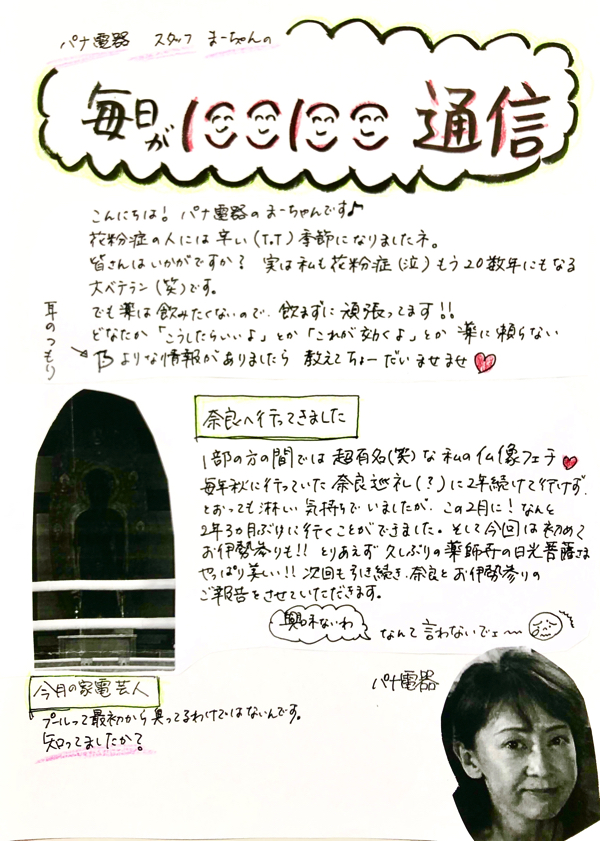 パナ電器 スタッフ まーちゃんの
毎日が にこにこ 通信
こんにちは! パナ電器のまーちゃんです♪
花粉症の人には辛い(T.T)季節になりましたネ。
皆さんはいかがですか? 実は私も花粉症(泣)もう20数年にもなる
大ベテラン(笑)です。
でも薬は飲みたくないので、飲まずに頑張ってます!!
どなたか「こうしたらいいよ」とか「これが効くよ」とか 薬に頼らない
ような情報がありましたら 教えてちょーだいませませ♥
耳のつもり
奈良へ行ってきました
1部の方の間では 超有名(笑)な 私の仏像フェチ♥
毎年秋に行っていた 奈良巡礼(?)に2年続けて行けず、
とおっても淋しい気持ちでいましたが、この2月に!なんと
2年3か月ぶりに行くことができました。そして今回は初めて
お伊勢参りも!! とりあえず 久しぶりの薬師寺の日光菩薩さま
やっぱり美しい!! 次回も引き続き、奈良とお伊勢参りの
ご報告をさせていただきます。
興味ないわ
なんて言わないでェ〜
今月の家電芸人
プールって最初から臭ってるわけではないんです。
知ってましたか?
パナ電器